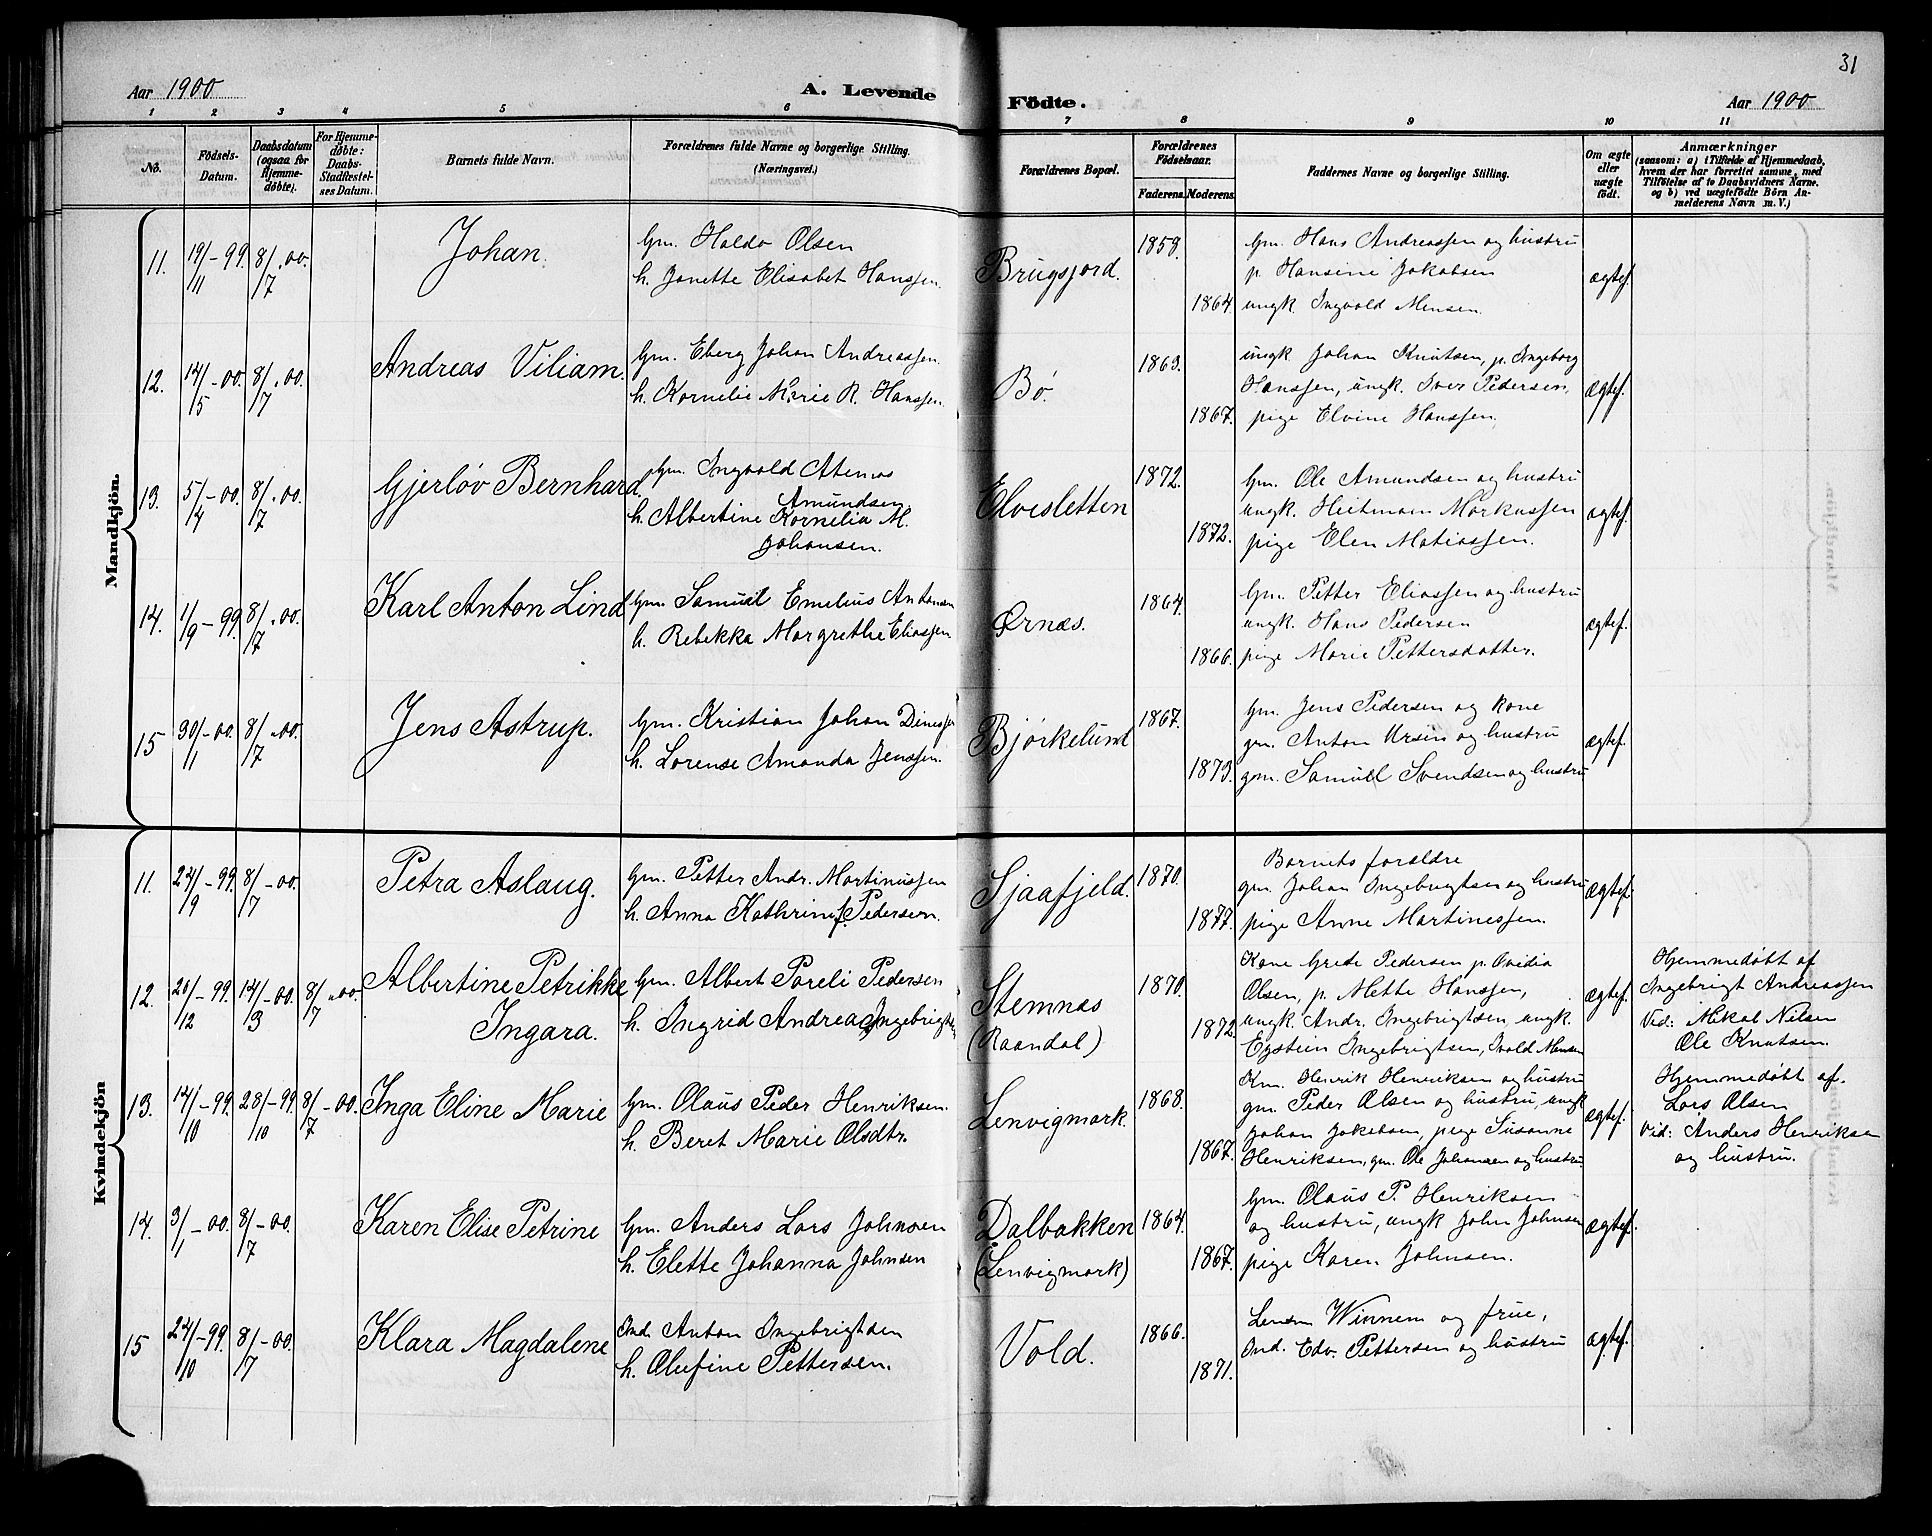 31
Aar 1900
A. Levende Födte.
Aar 1900
1 2 3 4 5 6 7 8 9 10 11
No.
Födsels-Datum.
Daabsdatum (ogsaa for Hjemmedøbte).
For Hjemmedøbte: Daabs-Stadfestelses Datum.
Barnets fulde Navn.
Forældrenes fulde Navne og borgerlige Stilling. (Næringsvei.)
Forældrenes Bopæl.
Forældrenes Födselsaar.
Faderens. Moderens.
Faddernes Navne og borgerlige Stilling.
Om ægte eller uægte födt.
Anmærkninger
(saasom: a) i Tilfælde af Hjemmedaab, hvem der har forrettet samme, med Tilföielse af to Daabsvidners Navne. og b) ved uægtefödte Börn Anmelderens Navn m. V.)
Mandkjön.
11. 19/11 - 99. 8/7 . 00. Johan.
Gm. Haldo Olsen
h. Janette Elisabet Hanssen.
Brugsjord. 1858. 1864.
Gm. Hans Andreassen og hustru
p. Hansine Jakobsen
ungk. Ingvald Monsen.
ægtef.
12. 14/5 - 00. 8/7 . 00. Andreas Viliam.
Gm. Eberg Johan Andreassen.
h. Kornelie Marie R. Hanssen.
Bø. 1863. 1867.
ungk Johan Knutsen, p. Ingeborg
Hanssen, ungk. Iver Pedersen,
pige Elvine Hanssen.
ægtef.
13. 5/4 - 00. 8/7 . 00. Gjerløv Bernhard.
Gm. Ingvald Atenas
Amundsen
h. Albertine Kornelia M.
Johansen.
Elvesletten 1872. 1872.
Gm. Ole Amundsen og hustru
ungk. Heitman Markussen
pige Elen Matiassen.
ægtef.
14. 1/9 - 99. 8/7 . 00. Karl Anton Lind
Gm. Samuel Emelius Antonsen
h. Rebekka Margrethe Eliassen
Ørnæs. 1864. 1866.
Gm. Petter Eliassen og hustru
ungk. Hans Pedersen
pige Marie Pettersdatter.
ægtef.
15 30/11 - 00. 8/7 . 00. Jens Astrup.
Gm. Kristian Johan Dinessen
h. Lorense Amanda Jenssen.
Bjørkelund 1867. 1873.
Gm. Jens Pedersen og kone
gm. Anton Ursin og hustru
gm. Samuel Svendsen og hustru
ægtef.
Kvindekjön
11. 24/9 - 99. 8/7 - 00. Petra Aslaug.
Gm. Petter Andr. Martinussen
h. Anna Kathrine J. Pedersen.
Sjaafjeld. 1870. 1877.
Barnets forældre
gm. Johan Ingebrigtsen og hustru
pige Anne Martinessen.
ægtef.
12. 20/12 - 99. 14/3 - 00. 8/7 . 00. Albertine Petrikke
Ingara.
Gm. Albert Pareli Pedersen
h. Ingrid Andrea Ingebrigts
Stemnæs
(Raandal)
1870. 1872.
Kone Grete Pedersen p. Ovidia
Olsen, p. Mette Hanssen,
ungk. Andr. Ingebrigtsen, ungk.
Eystein Ingebrigtsen, Ivald Monsen
ægtef.
Hjemmedøbt af
Ingebrigt Andreassen
Vid: Mikal Nilsen
Ole Knutsen.
13. 14/10 - 99. 28/10 - 99. 8/7 - 00. Inga Eline Marie
Gm. Olaus Peder Henriksen.
h. Beret Marie Olsdtr.
Lenvigmark. 1868. 1867.
Km. Henrik Henriksen og hustru
gm. Peder Olsen og hustru, ungk
Johan Jakobsen, pige Susanne
Henriksen, gm. Ole Johansen og hustru
ægtef.
Hjemmedøbt af.
Lars Olsen
Vid: Anders Henriksen
og hustru.
14. 3/1 - 00. 8/7 - 00. Karen Elise Petrine
Gm. Anders Lars Johnsen
h. Elette Johanna Johnsen
Dalbakken
(Lenvigmark)
1864. 1867.
Gm. Olaus P. Henriksen
og hustru, ungk John Johnsen
pige Karen Johnsen.
ægtef.
15 24/10 - 99. 8/7 - 00. Klara Magdalene
Ind. Anton Ingebrigtsen
h. Olufine Pettersen.
Vold. 1866. 1871.
Winnem og frue,
Ind. Edv. Pettersen og hustru
ægtef.